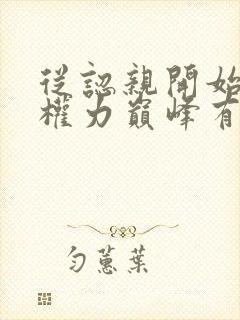 從認親開始
權力巔峰有
勻蕙葉